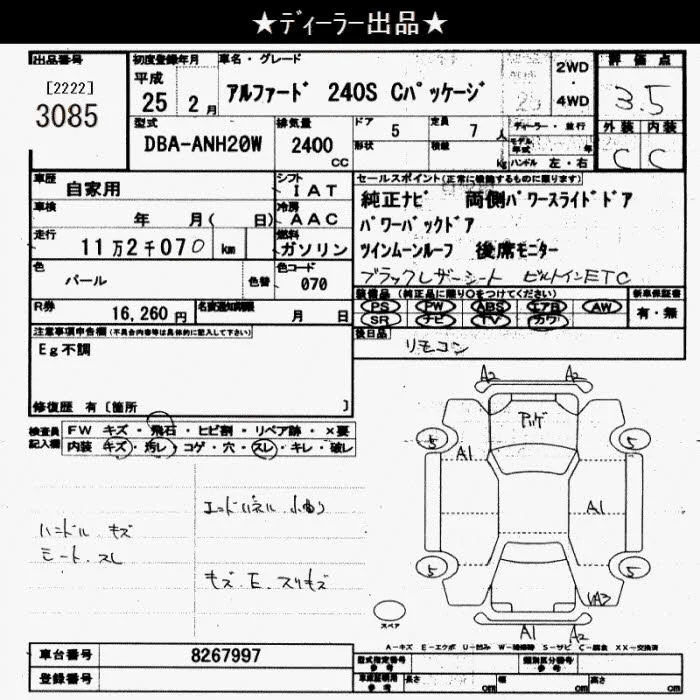 ★ディーラー出品★
出品番号
[2222]
3085
初度登録年月
平成
25 2月
車名・グレード
アルファード 240S Cパッケージ
2WD
4WD
評価点
3.5
外装 内装
C C
型式
DBA-ANH20W
排気量
2400
cc
ドア 5
形状
定員 7 人
積載 kg
ディーラー・並行
モデル年式 年
ハンドル 左・右
車歴
自家用
シフト
IAT
車検
年 月( 日)
冷房
AAC
走行
11万2千070 km
燃料
ガソリン
色
パール
色替
色コード
070
R券
16,260円
名変通知期限
月 日
セールスポイント(正常に機能するものに限ります)
純正ナビ 両側パワースライドドア
パワーバックドア
ツインムーンルーフ 後席モニター
ブラックレザーシート ビルトインETC
装備品(純正品に限り○をつけてください)
PS PW ABS エアB AW
SR ナビ TV カワ
新車保証書
有・無
後日品
リモコン
注意事項申告欄(不具合内容等は具体的に記入して下さい)
Eg不調
修復歴 有 [箇所 ]
検査員
記入欄
FW キズ・飛石・ヒビ割・リペア跡・×要
内装・キズ・汚レ・コゲ・穴・スレ・キレ・破レ
ハンドル キズ
シート.スレ
キズ.E.スリキズ
A2 A2
5 5
A1
A1
5 5
A3
A1 A2
スペア
A-キズ E-エクボ U-凹み W-補修跡 S-サビ C-腐食 XX-交換済
車台番号
8267997
登録番号
型式指定番号
参考
類別区分番号
参考
車庫証明用
参考
長さ cm
幅 cm
高さ cm